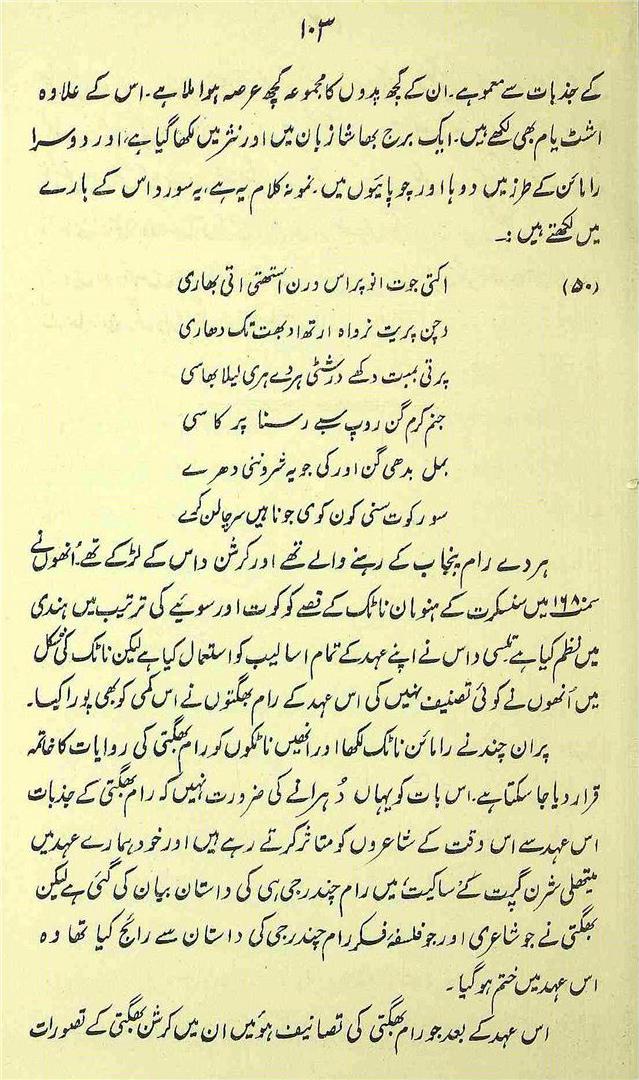 ۱۰۳
کے جذبات سے معمو ہے۔ ان کے کچھ پدوں کا مجموعہ کچھ عرصہ ہوا ملا ہے۔ اس کے علاوہ
اشٹ یام بھی لکھے ہیں۔ ایک برج بھاشا زبان میں اور نثر میں لکھا گیا ہے، اور دوسرا
رامائن کے طرز میں دوہا اور چوپائیوں میں۔ نمونہ کلام یہ ہے، یہ سورداس کے بارے
میں لکھتے ہیں :۔
(۵۰) اکتی جوت انوپراس درن استھتی اتی بھاری
دچن پریت نرواہ ارتھ ادبھت تک دھاری
پرتی بمبت دکھے درشٹی ہردے ہری لیلا بھاسی
جنم کرم گن روپ سبے رسنا پرکاسی
بمل بدھی گن اور کی جویہ شرونی دھرے
سورکوت سنی کون کوی جو ناہیں سرچالن کرے
ہردے رام پنجاب کے رہنے والے تھے اور کرشن داس کے لڑکے تھے۔ اُنھوں نے
سمت ۱۶۸۰ میں سنسکرت کے ہنومان ناٹک کے قصے کو کوت اور سوئیے کی ترتیب میں ہندی
میں نظم کیا ہے۔ تلسی داس نے اپنے عہد کے تمام اسالیب کو استعمال کیا ہے لیکن ناٹک کی شکل
میں اُنھوں نے کوئی تصنیف نہیں کی اس عہد کے رام بھگتوں نے اس کمی کو بھی پورا کیا۔
پران چند نے رامائن ناٹک لکھا اور انھیں ناٹکوں کو رام بھگتی کی روایات کا خاتمہ
قرار دیا جا سکتا ہے۔ اس بات کو یہاں دُہرانے کی ضرورت نہیں کہ رام بھگتی کے جذبات
اس عہد سے اس وقت کے شاعروں کو متاثر کرتے رہے ہیں اور خود ہمارے عہد میں
میتھلی شرن گپت کے ’ساکیت‘ میں رام چندرجی ہی کی داستان بیان کی گئی ہے لیکن
بھگتی نے جو شاعری اور جو فلسفۂ فکر رام چندرجی کی داستان سے رائج کیا تھا وہ
اس عہد میں ختم ہو گیا۔
اس عہد کے بعد جو رام بھگتی کی تصانیف ہوئیں ان میں کرشن بھگتی کے تصورات